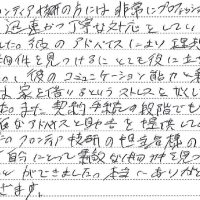 ロンティア技研の方には非常にプロフェッショ
迅速かつ丁寧な対応をしてい
した。彼のアドバイスにより理想
物件を見つけることも役に立
。彼のコミュニケーション能力と
は家を借りるというストレスをなくし
た。また、契約手続の段階でも
なアドバイスと助言を提供して
のフロンティア技研の担当者様の
自分にとって最適な物件を見つ
ことができました。本当にありがと
ざます。